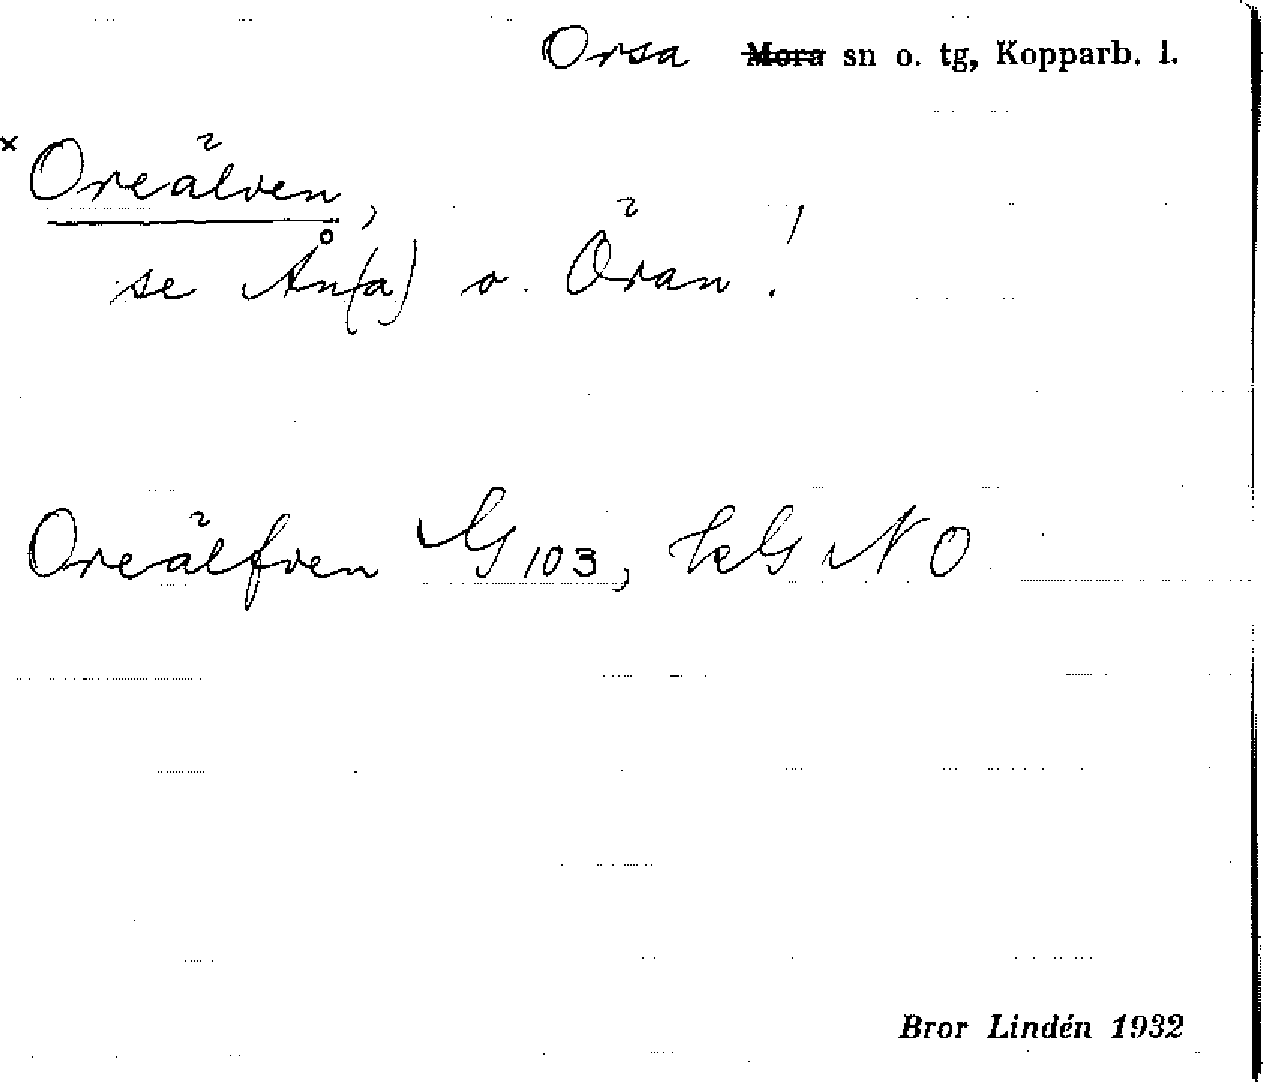 Orsa Mora sn o. tg, Kopparb. l.
× Oreälven,
se Ån(a) o. Öran!
Oreälfven G 103, kG NO
Bror Lindén 1932